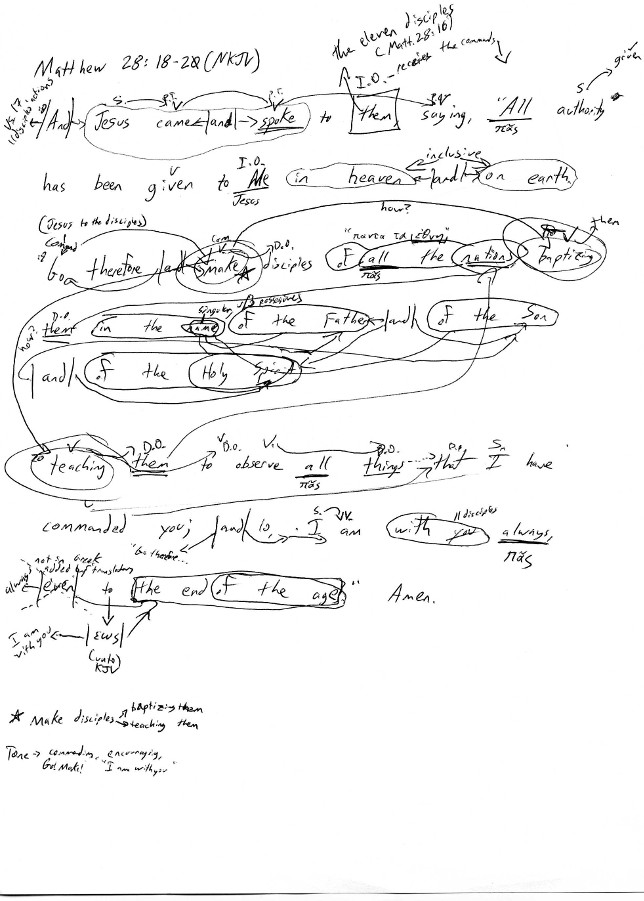 the eleven disciples
(Matt. 28:16)
Matthew 28:18-20 (NKJV)
I.O. - receives the commands
given
vs. 17
S. P.V. P.V. P.V. S
And Jesus came and spoke to them saying, "All authority
πᾶς
V I.O. inclusive
has been given to Me in heaven and on earth.
Jesus
how?
(Jesus to the disciples)
"παντα τα εθνη"
them
D.O. V
Go therefore and make disciples of all the nations baptizing
πᾶς
D.O. singular
how?
them in the name of the Father and of the Son
and of the Holy Spirit
V D.O. V D.O. V D.O. D.O. S.
teaching them to observe all things that I have
πᾶς
S. V. 11 disciples
commanded you; and lo, I am with you always,
πᾶς
"Go therefore...
not in Greek
added by translators
always even to the end of the age." Amen.
I am with you εως
(unto)
KJV
★ Make disciples baptizing them
teaching them
Tone → commanding, encouraging,
Go! Make! "I am with you"